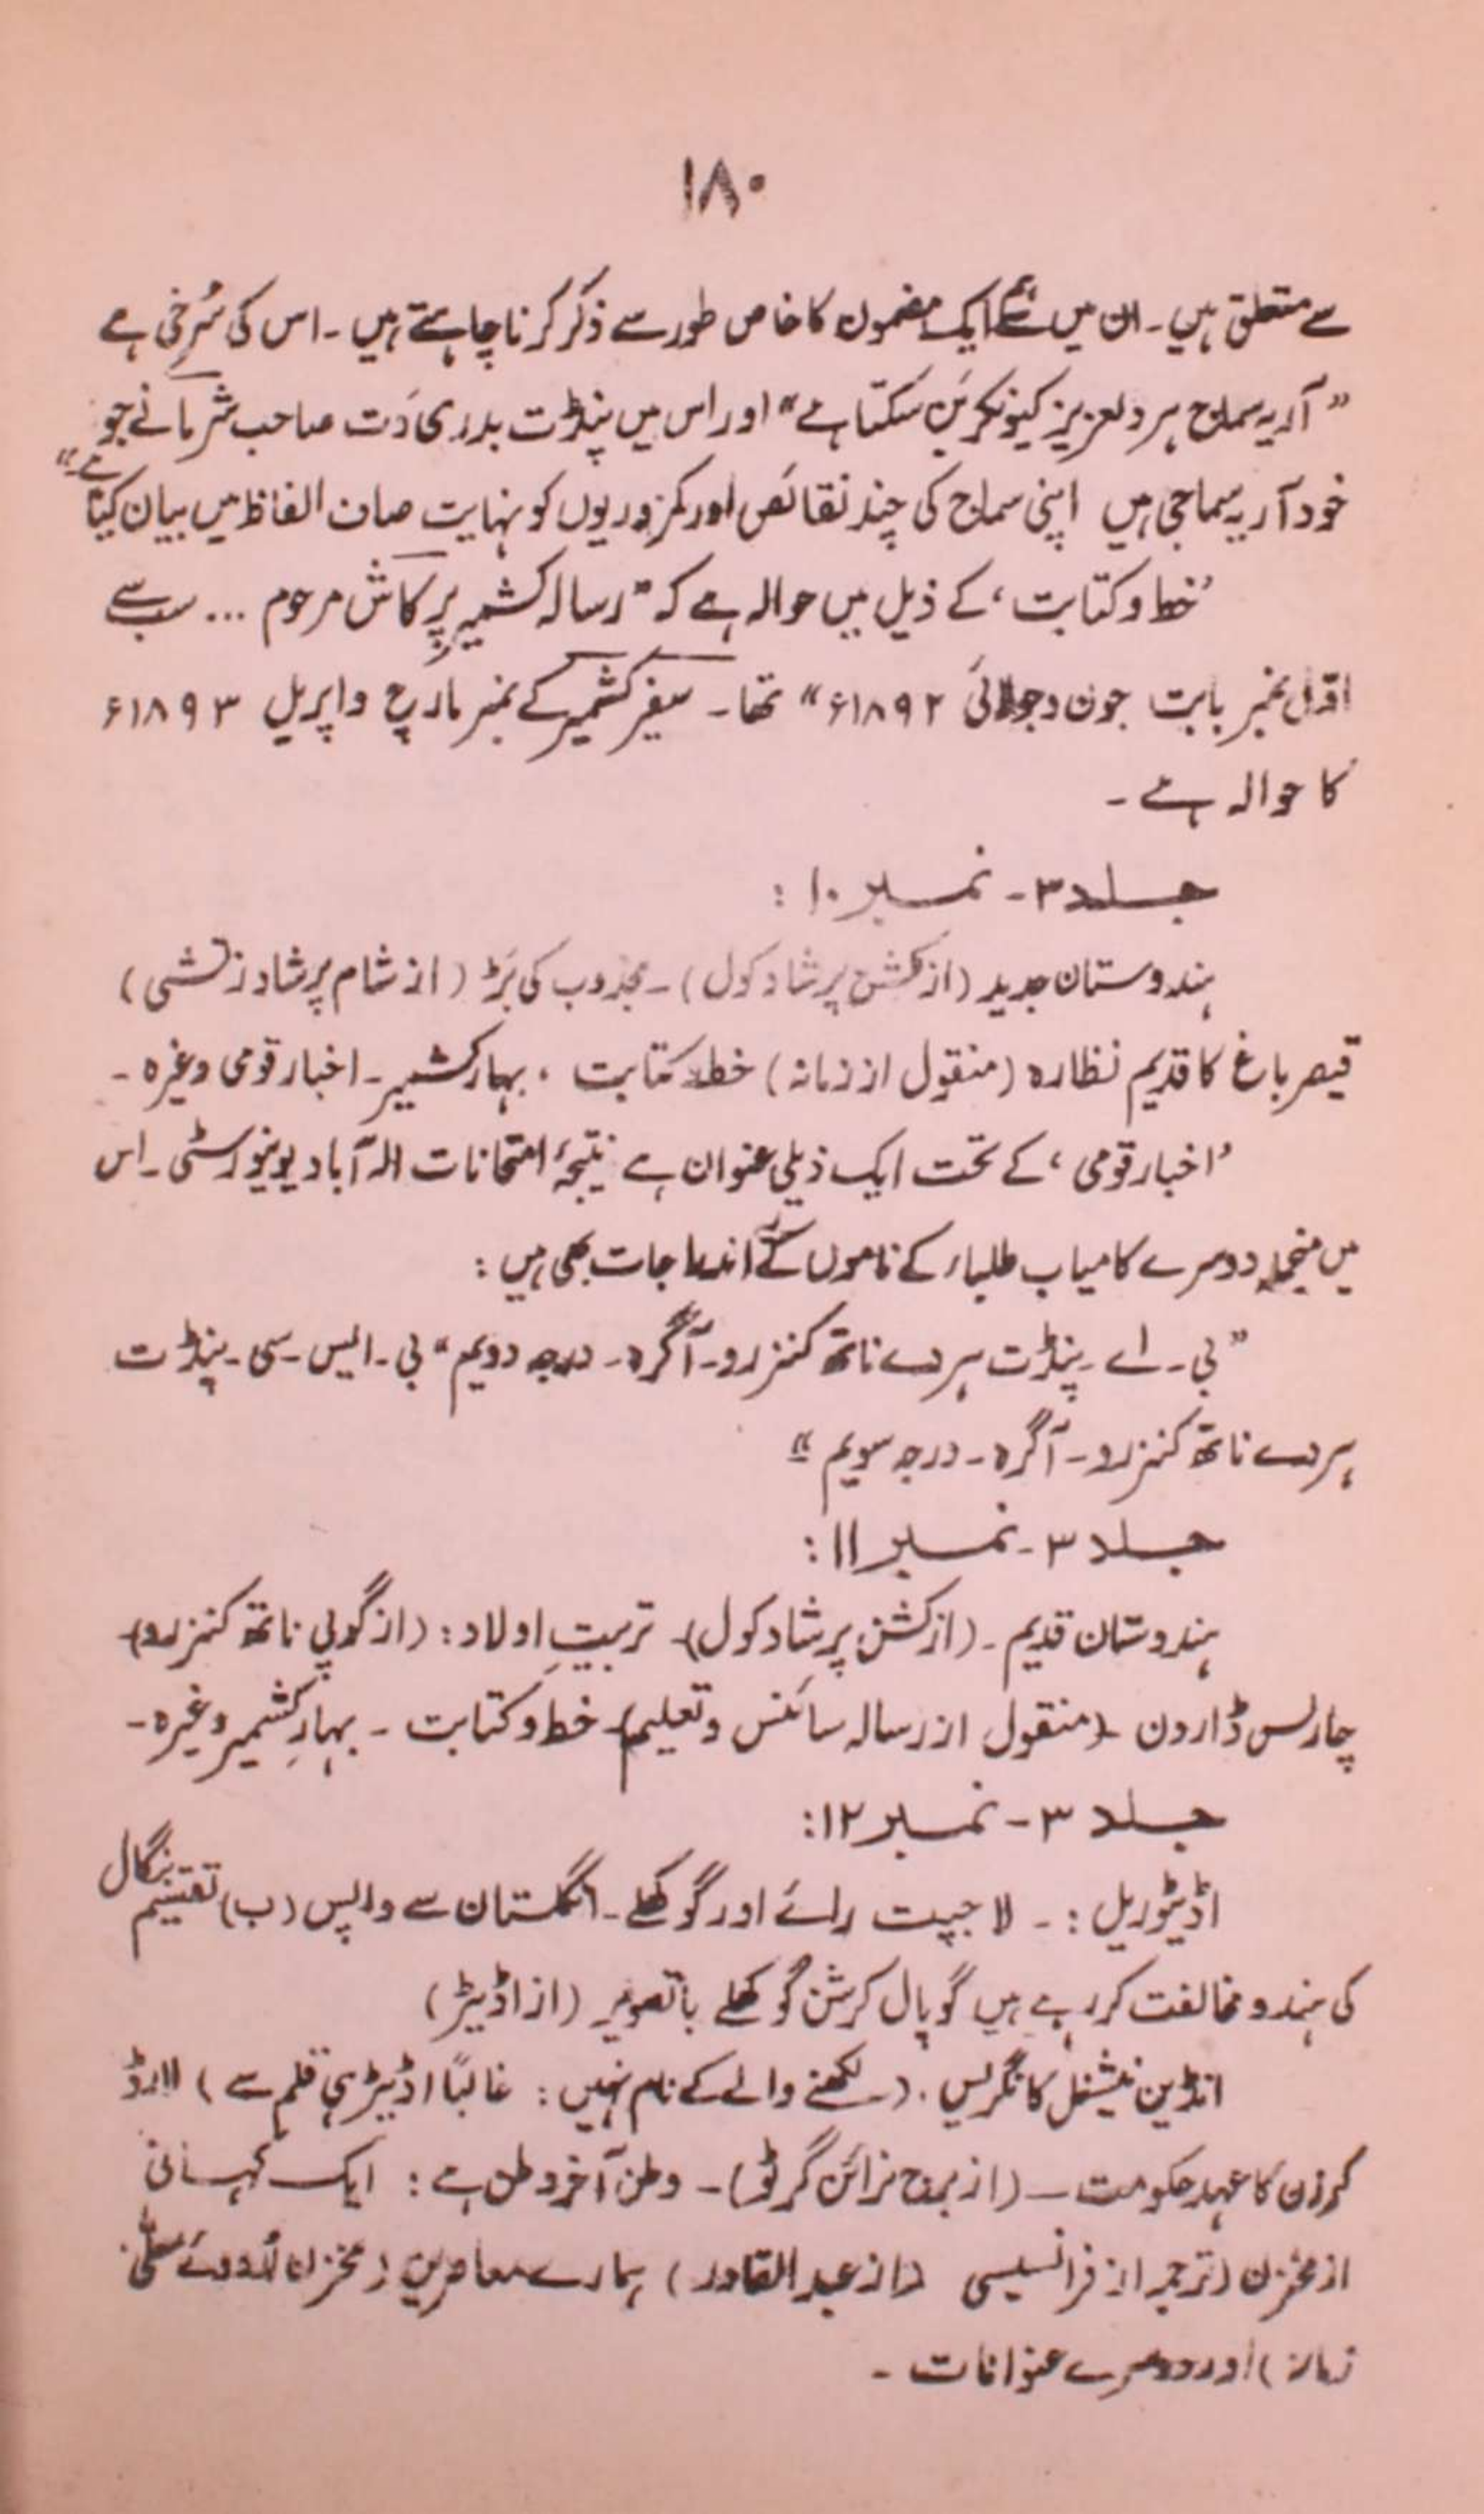 ۱۸۰
سے متعلق ہیں ۔ ان میں سے ہم ایک مضمون کا خاص طور سے ذکر کرنا چاہتے ہیں ۔ اس کی سُرخی ہے
” آریہ سماج ہر دلعزیز کیونکر بَن سکتا ہے “ اور اس میں پنڈت بدری دَت صاحب شرمانے جو
خود آریہ سماجی ہیں اپنی سماج کی چند نقائص اور کمزوریوں کو نہایت صاف الفاظ میں بیان کیا ہے ۔“
’خط و کتابت ‘ کے ذیل میں حوالہ ہے کہ ” رسالہ کشمیر پرکاش مرحوم ... سب سے
اوّل نمبر بابت جون و جولائی ۱۸۹۲ء “ تھا ۔ سفیر کشمیر کے نمبر مارچ و اپریل ۱۸۹۳ء
کا حوالہ ہے ۔
جلد ۳ ۔ نمبر ۱۰ :
ہندوستان جدید (از کشن پرشاد کول) ۔ مجذوب کی بَڑ (از شام پرشاد زتشی)
قیصر باغ کا قدیم نظارہ (منقول از زمانہ) خط و کتابت ، بہار کشمیر ۔ اخبار قومی وغیرہ ۔
’اخبار قومی ‘ کے تحت ایک ذیلی عنوان ہے نتیجۂ امتحانات الہ آباد یونیورسٹی ۔ اس
میں منجملہ دوسرے کامیاب طلباء کے ناموں کے اندراجات بھی ہیں :
” بی ۔ اے ۔ پنڈت ہردے ناتھ کنزرو ۔ آگرہ ۔ درجہ دویم “ بی ۔ ایس ۔ سی ۔ پنڈت
ہردے ناتھ کنزرو ۔ آگرہ ۔ درجہ سویم “
جلد ۳ ۔ نمبر ۱۱ :
ہندوستان قدیم ۔ (از کشن پرشاد کول) ۔ تربیتِ اولاد : (از گوپی ناتھ کنزرو)
چارلس ڈارون ۔ (منقول از رسالہ سائنس و تعلیم) ۔ خط و کتابت ۔ بہارِ کشمیر وغیرہ ۔
جلد ۳ ۔ نمبر ۱۲ :
اڈیٹوریل : ۔ لاجپت رائے اور گوکھلے ۔ انگلستان سے واپس (ب) تقسیم بنگال
کی ہندو مخالفت کر رہے ہیں گوپال کرشن گوکھلے باتصویر (از اڈیٹر)
انڈین نیشنل کانگریس . (لکھنے والے کے نام نہیں : غالباً اڈیٹر ہی قلم سے) لارڈ
کرزن کا عہد حکومت ۔ (از برج نرائن گرٹو) ۔ وطن آخر وطن ہے : ایک کہانی
از مخزن (ترجمہ از فرانسیسی (از عبدالقادر) ہمارے معاصرین (مخزن اُردوئے معلّٰی،
زمانہ) اور دوسرے عنوانات ۔